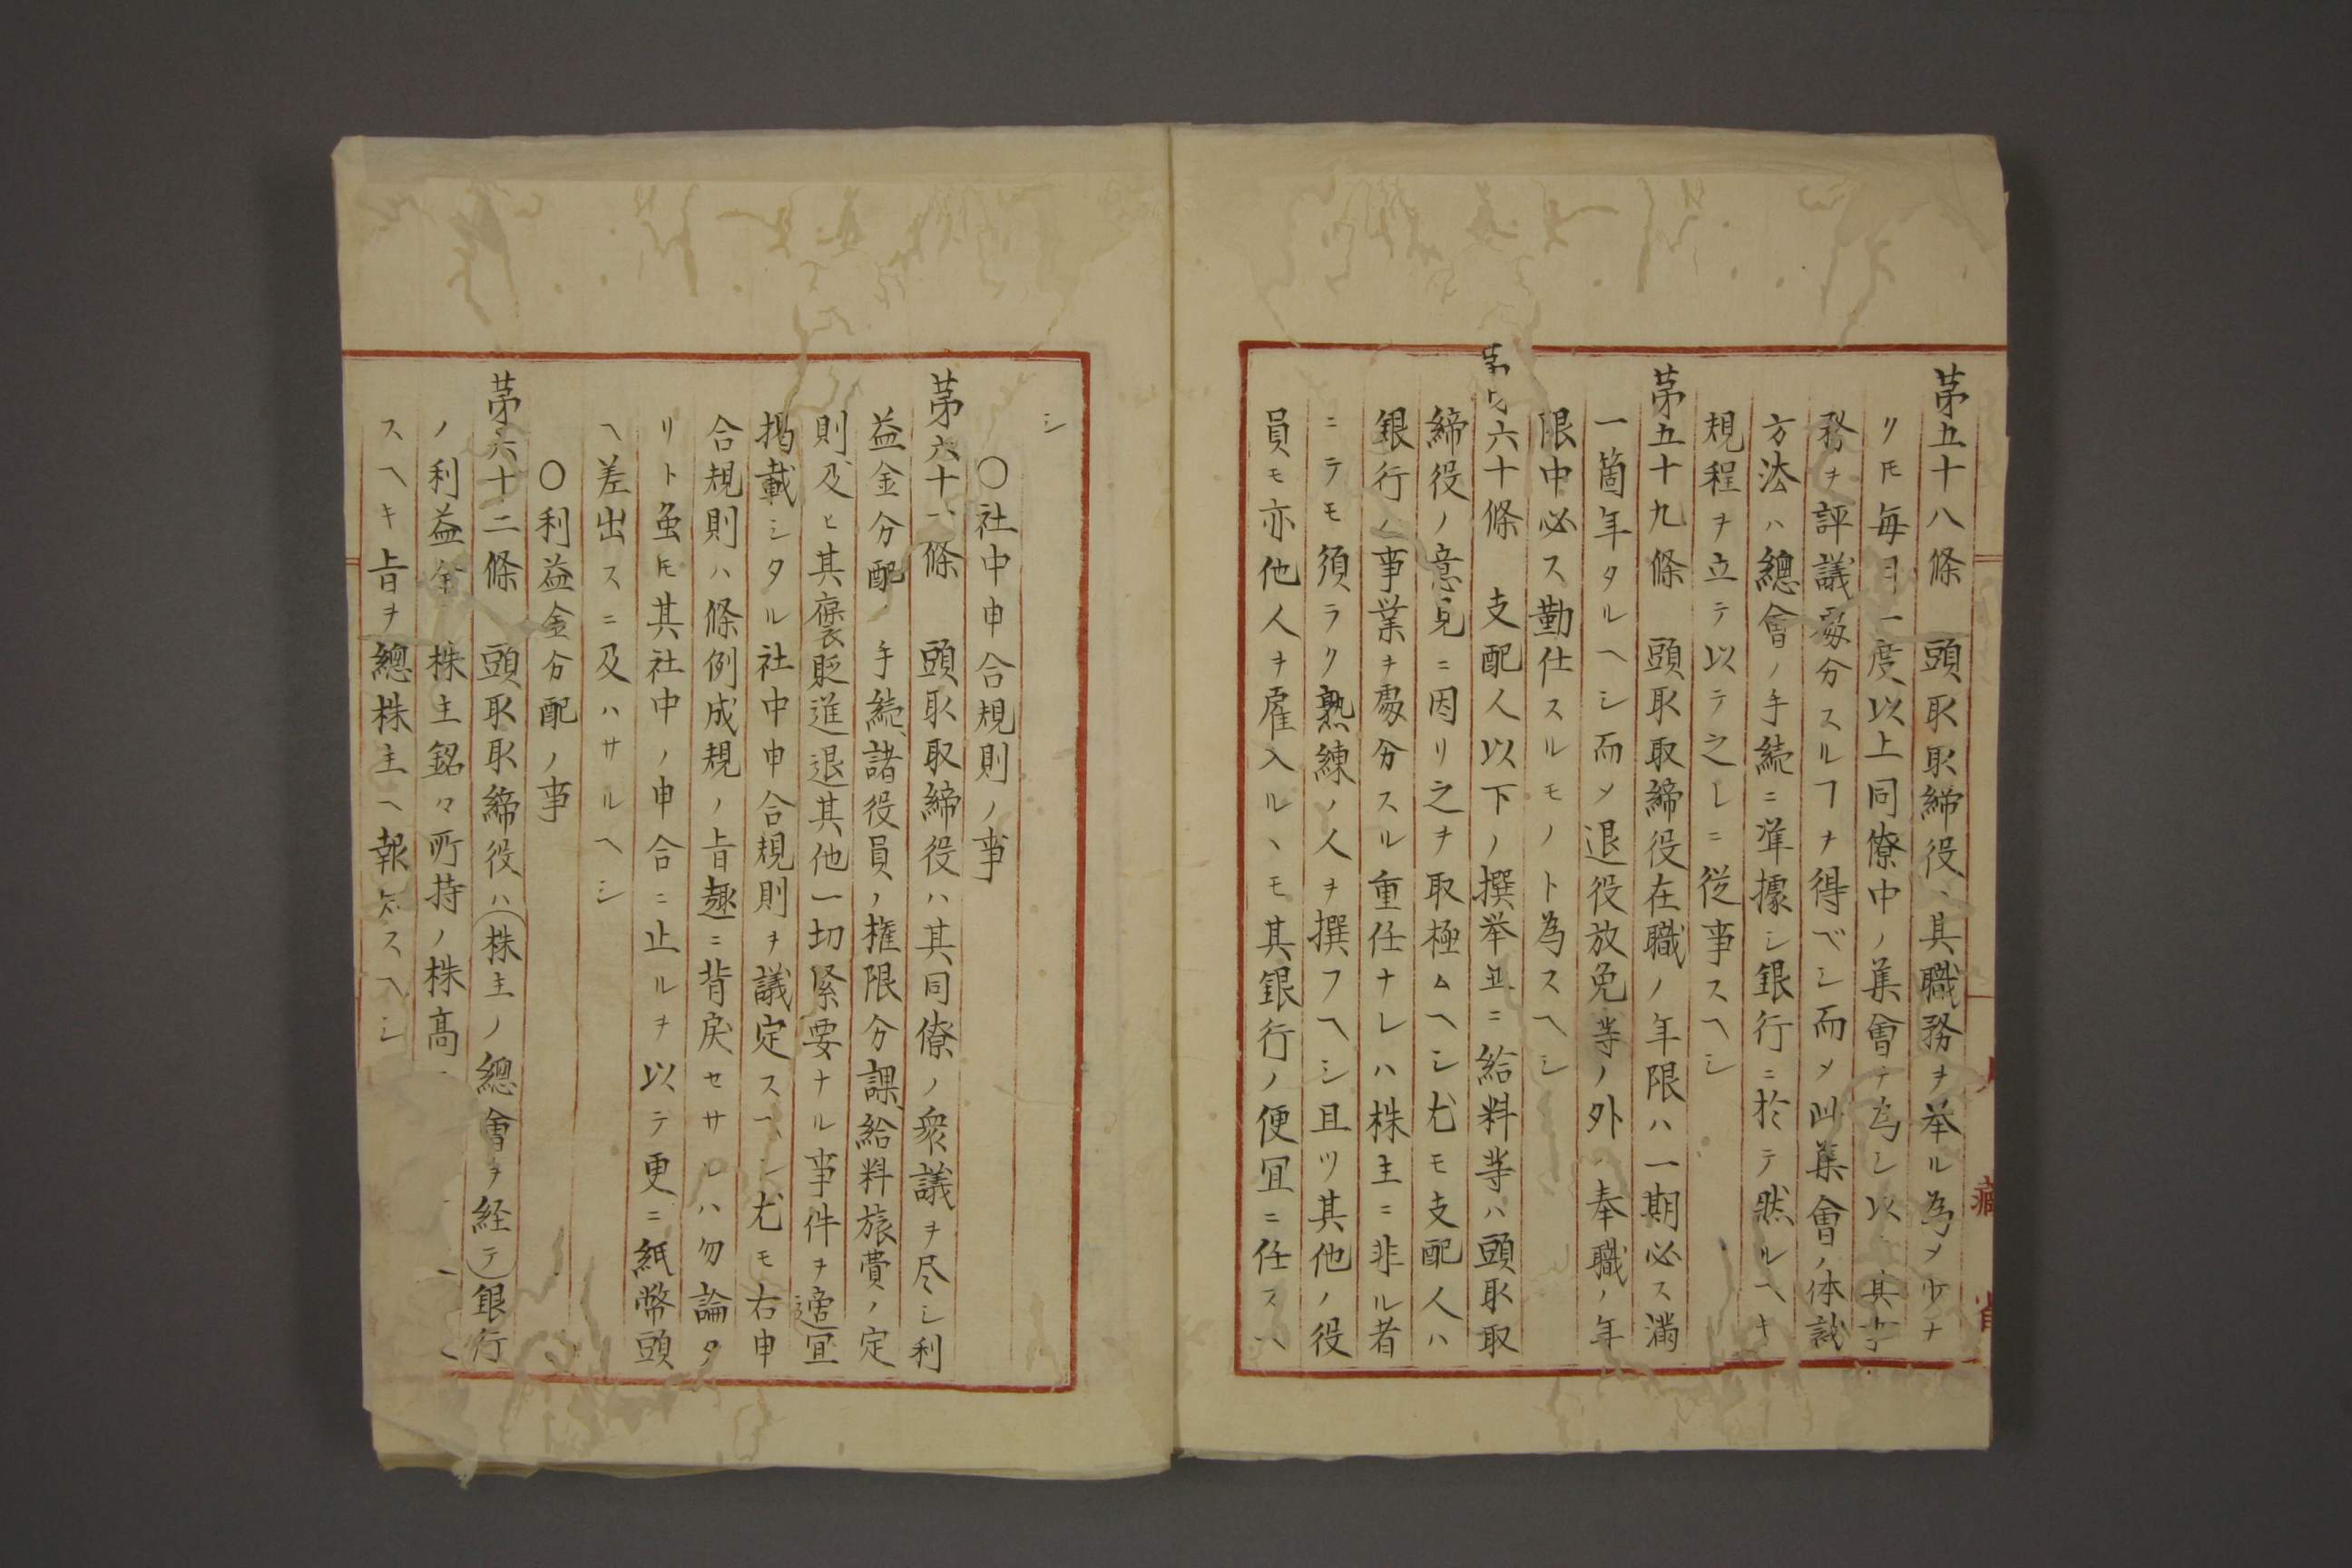 第五十八條　頭取取締役ハ其職務ヲ挙ル為メ少ナ
クトモ毎月一度以上同僚中ノ集會ヲ為シ以其事
務ヲ評議處分スルヿヲ得ベシ而メ此集會ノ体裁
方法ハ總會ノ手続ニ準據シ銀行ニ於テ然ルヘキ
規程ヲ立テ以テ之レニ従事スヘシ
第五十九條　頭取取締役在職ノ年限ハ一期必ス満
一箇年タルヘシ而メ退役放免等ノ外ハ奉職ノ年
限中必ス勤仕スルモノト為スヘシ
第六十條　支配人以下ノ撰挙並ニ給料等ハ頭取取
締役ノ意見ニ因リ之ヲ取極ムヘシ尤モ支配人ハ
銀行ノ事業ヲ處分スル重任ナレハ株主ニ非ル者
ニテモ須ラク熟練ノ人ヲ撰フヘシ且ツ其他ノ役
員モ亦他人ヲ雇入ルヽモ其銀行ノ便冝ニ任スヘ
シ
〇社中申合規則ノ事
第六十一條　頭取取締役ハ其同僚ノ衆議ヲ尽シ利
益金分配ノ手続諸役員ノ権限分課給料旅費ノ定
則及ヒ其褒貶進退其他一切緊要ナル事件ヲ適冝
掲載シタル社中申合規則ヲ議定スヘシ尤モ右申
合規則ハ條例成規ノ旨趣ニ背戻セサレハ勿論タ
リト虽𪜈其社中ノ申合ニ止ルヲ以テ更ニ紙幣頭
ヘ差出スニ及ハサルヘシ
〇利益金分配ノ事
第六十二條　頭取取締役ハ（株主ノ總會ヲ経テ）銀行
ノ利益金　株主銘々所持ノ株高
スヘキ旨ヲ總株主ヘ報知スヘシ
藏 省